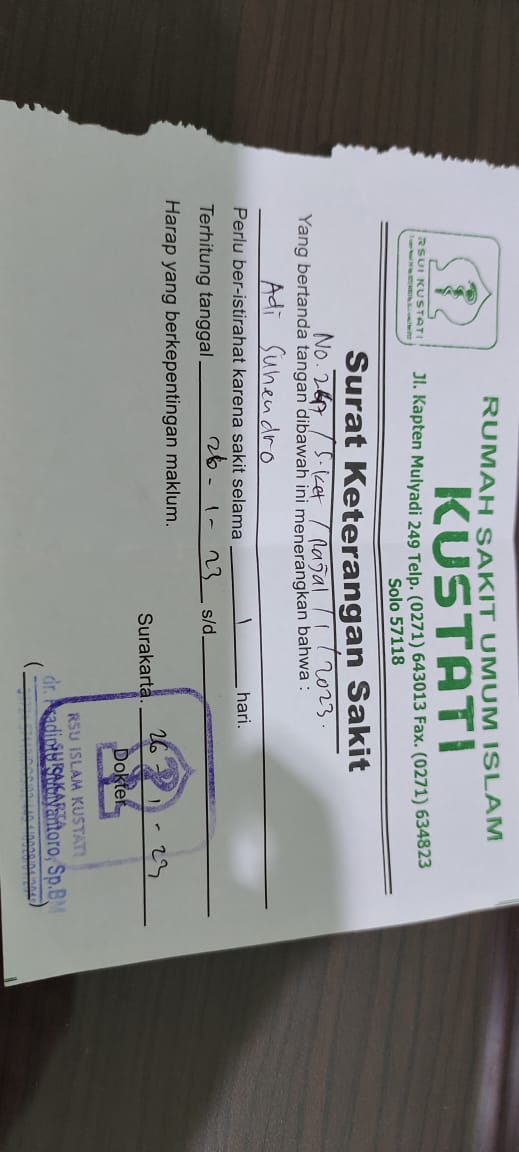 RSUI KUSTATI
RUMAH SAKIT UMUM ISLAM
KUSTATI
Jl. Kapten Mulyadi 249 Telp. (0271) 643013 Fax. (0271) 634823
Solo 57118
Surat Keterangan Sakit
No. / S.Ket / / 1 / 2023.
Yang bertanda tangan dibawah ini menerangkan bahwa :
Adi Suhendro
Perlu ber-istirahat karena sakit selama 1 hari.
Terhitung tanggal 26 - 1 - 23 s/d
Harap yang berkepentingan maklum.
Surakarta. 26 - 1 - 23
Dokter
RSU ISLAM KUSTATI
SURAKARTA
dr. Sp.BM
( )